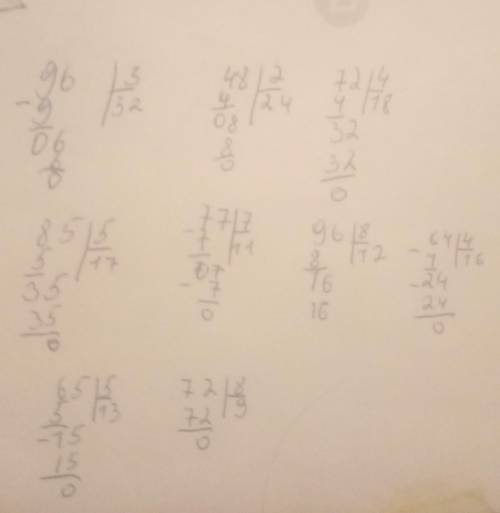 96 | 3
- 9 | 32
06
6
0
48 | 2
4 | 24
08
8
0
72 | 4
4 | 18
32
32
0
85 | 5
5 | 17
35
35
0
- 77 | 7
7 | 11
07
- 7
0
96 | 8
8 | 12
16
16
- 64 | 4
4 | 16
- 24
24
0
65 | 5
5 | 13
- 15
15
0
72 | 8
72 | 9
0